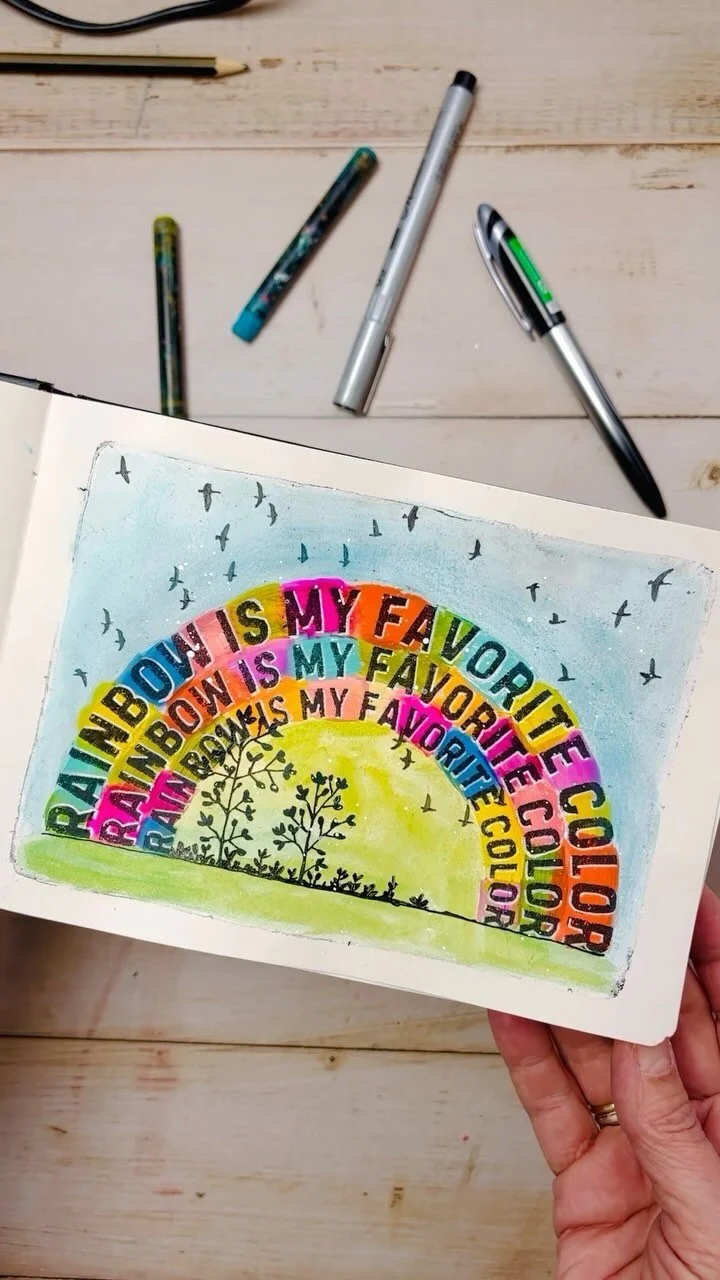 RAINBOW IS MY FAVORITE COLOR
RAINBOW IS MY FAVORITE COLOR
RAINBOW IS MY FAVORITE COLOR